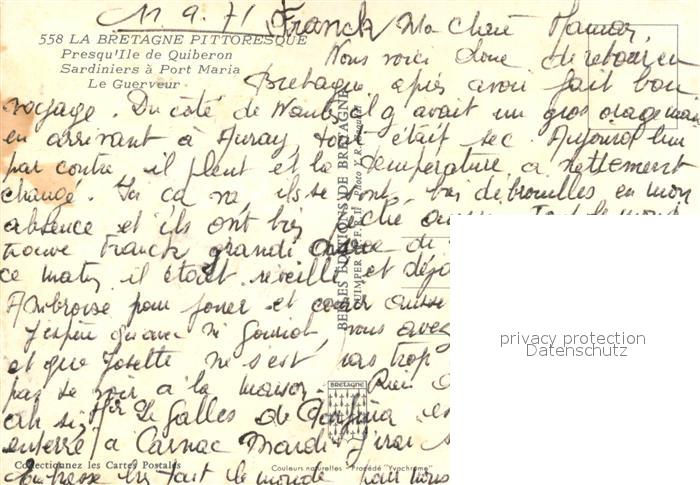 11.9.71 Franck Ma chère Maman,
558 LA BRETAGNE PITTORESQUE
Presqu'Ile de Quiberon
Sardiniers à Port Maria
Le Guerveur
Nous voici donc de retour en
Bretagne après avoir fait bon
voyage. Du côté de Nantes il y avait un gros orage mais
en arrivant à Auray, tout était sec. Aujourd'hui
par contre il pleut et la température a nettement
changé. Ici ça va, ils se sont bien débrouillés en mon
absence et ils ont bien pêché
trouve Franck grandi
ce matin il était réveillé et déjà
Ambroise pour jouer et courir
J'espère qu'avec Mr vous avez
et que Josette ne s'est pas trop
pas te voir à la maison. Rien
ah si, Mr Le Galles de
enterré à Carnac Mardi. J'irai
Embrasse bien tout le monde pour nous
BELLES EDITIONS DE BRETAGNE
QUIMPER
Photo
BRETAGNE
Collectionnez les Cartes Postales
Couleurs naturelles - Procédé "Yvachrome"
privacy protection
Datenschutz